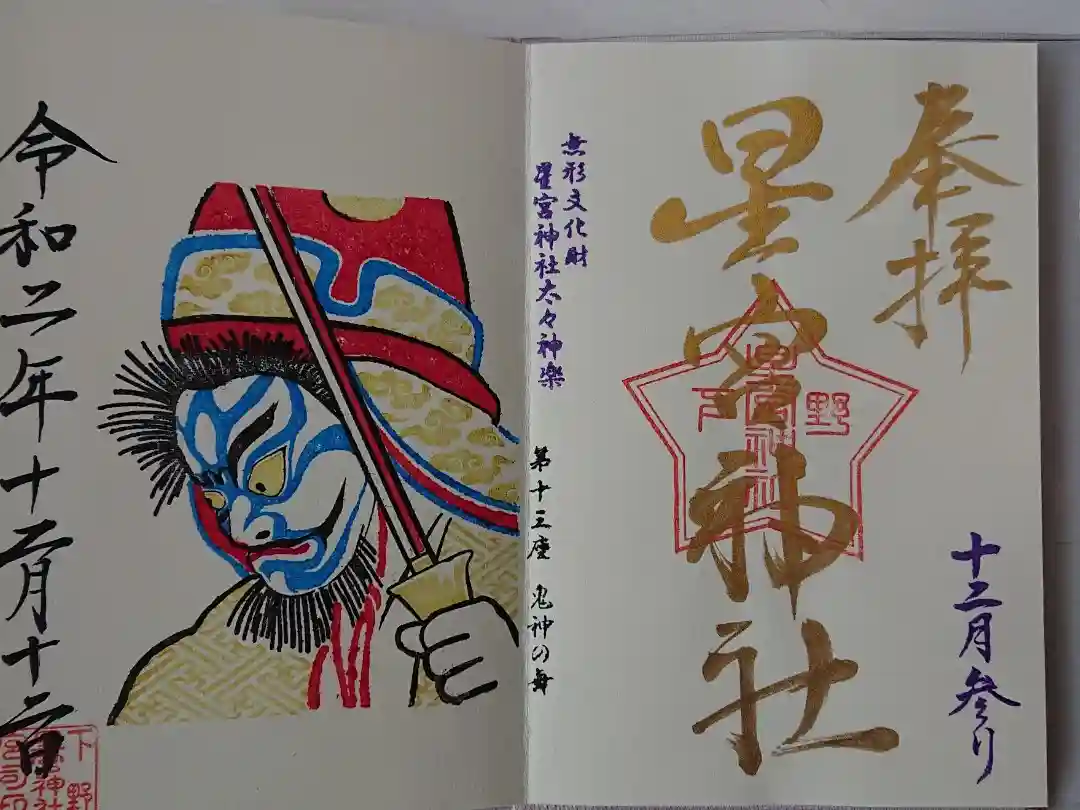 奉拝
星宮神社
下野
十二月参り
無形文化財
星宮神社太々神楽
第十三座 鬼神の舞
令和二年十二月十二日
下野
星宮神社
宮司印